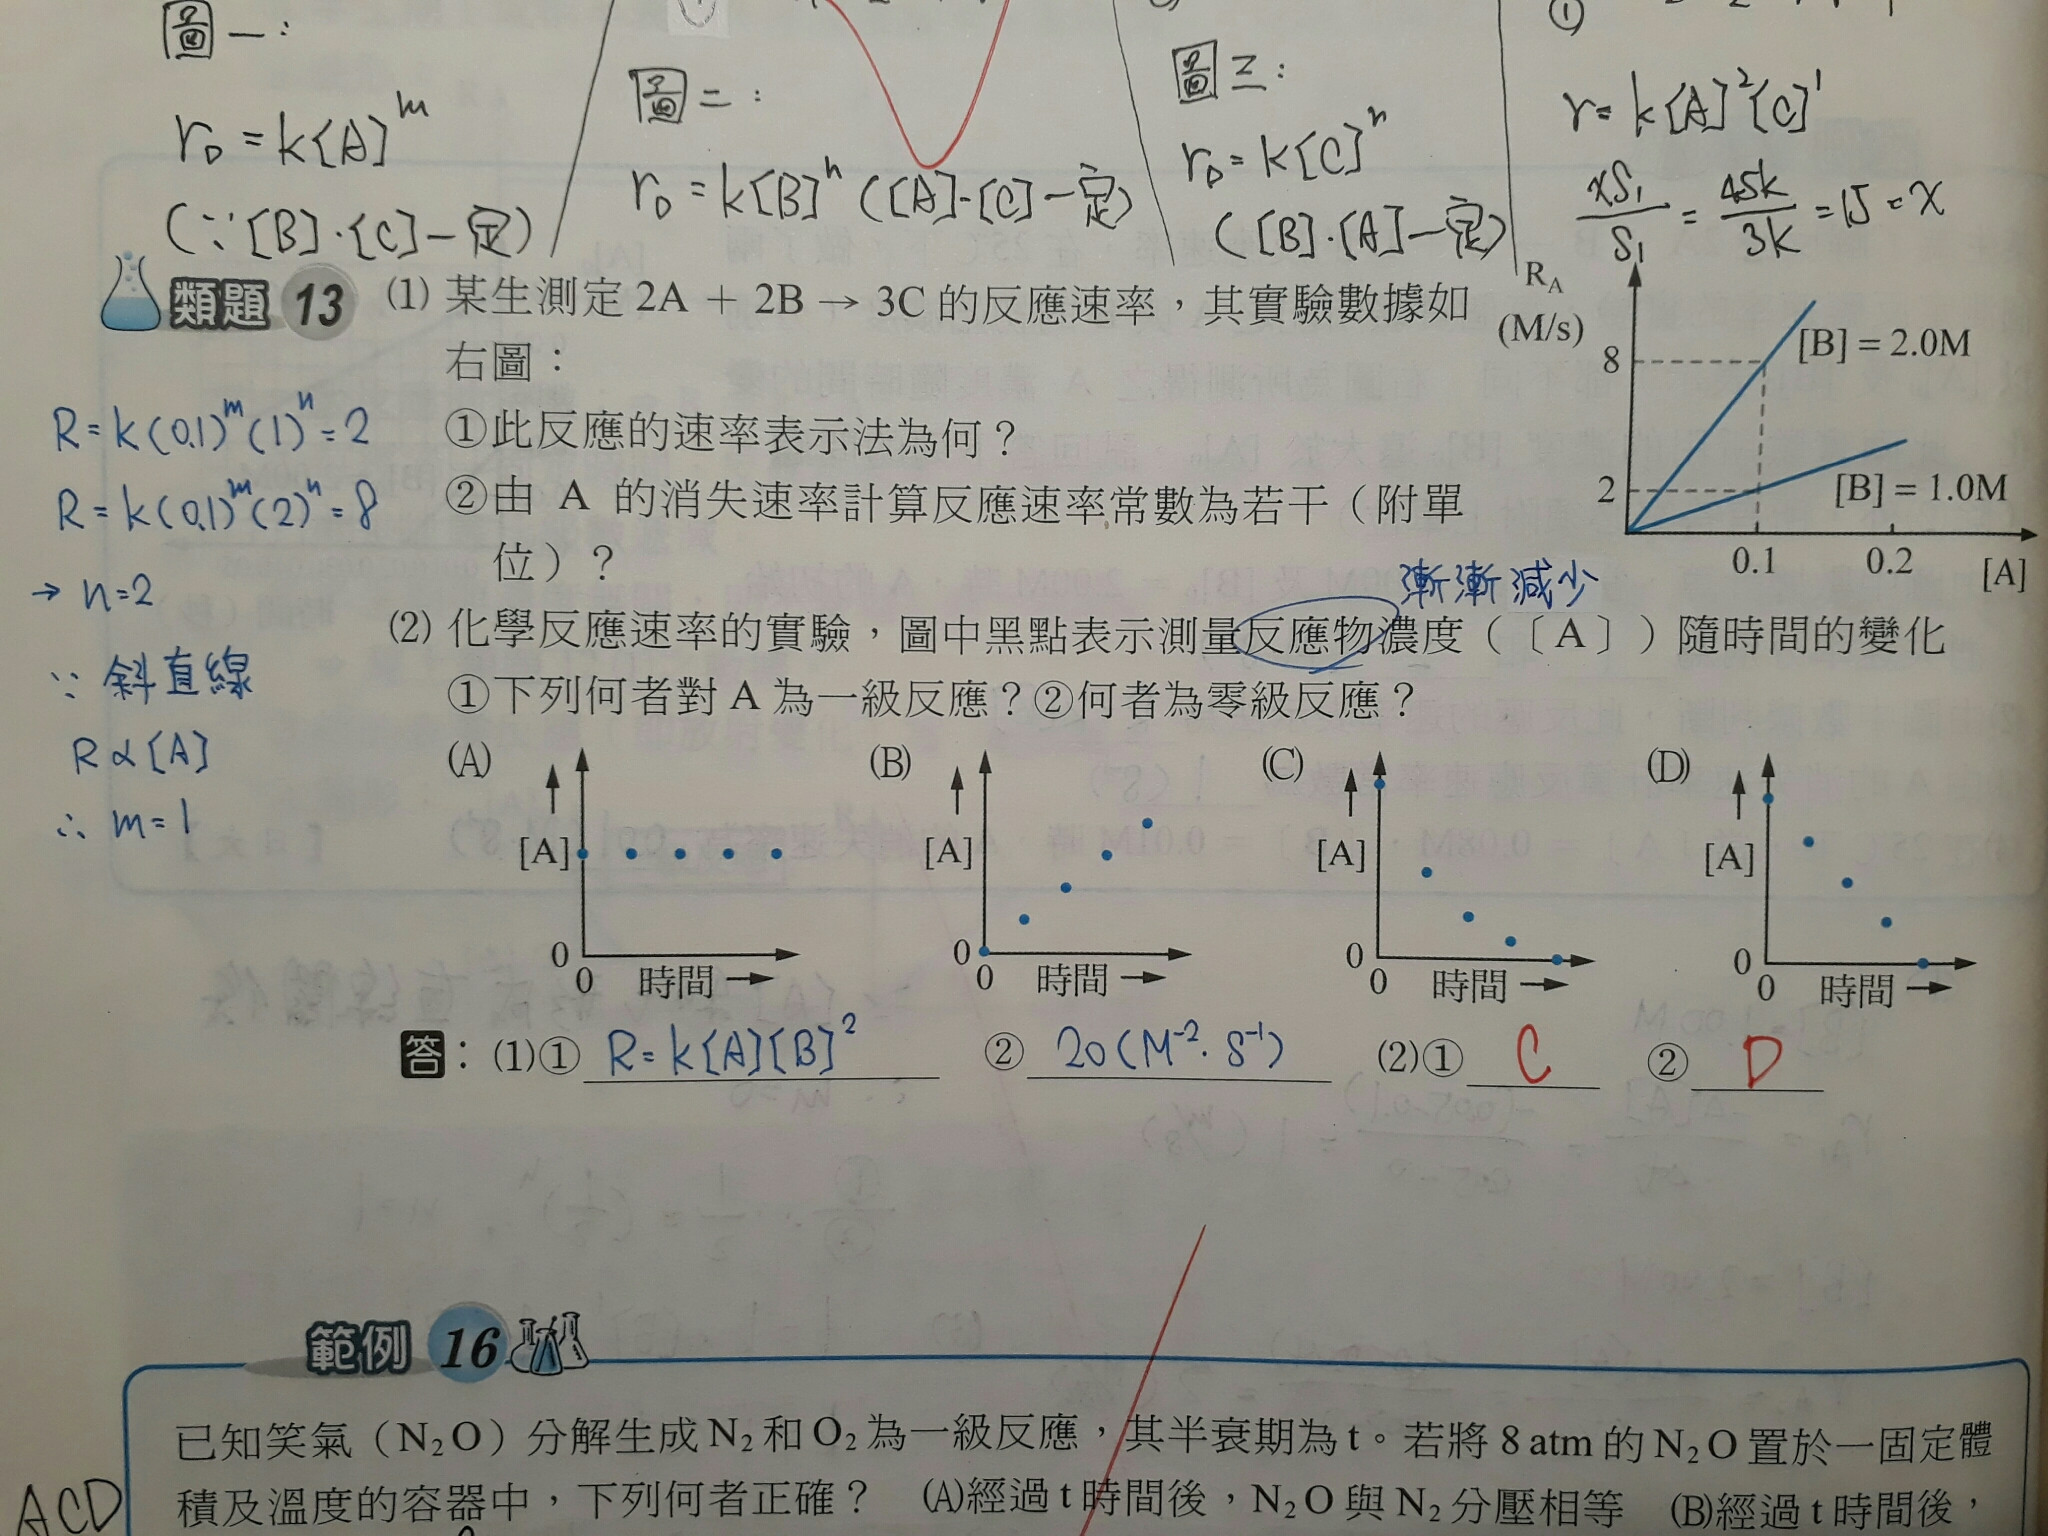 圖一:
r_D = k[A]^m
(∵[B]·[C]一定)
圖二:
r_D = k[B]^n ([A]·[C]一定)
圖三:
r_D = k[C]^n
([B]·[A]一定)
①
r = k[A]²[C]¹
xS₁/S₁ = 45k/3k = 15 = x
類題 13 (1) 某生測定 2A + 2B → 3C 的反應速率，其實驗數據如
右圖：
①此反應的速率表示法為何？
②由 A 的消失速率計算反應速率常數為若干（附單
位）？
R_A
(M/s)
8
2
[B] = 2.0M
[B] = 1.0M
0.1 0.2 [A]
R = k(0.1)^m(1)^n = 2
R = k(0.1)^m(2)^n = 8
→ n=2
∵ 斜直線
R ∝ [A]
∴ m=1
漸漸減少
(2) 化學反應速率的實驗，圖中黑點表示測量反應物濃度（〔A〕）隨時間的變化
①下列何者對 A 為一級反應？②何者為零級反應？
(A) (B) (C) (D)
[A] [A] [A] [A]
0 0 0 0
0 時間 → 0 時間 → 0 時間 → 0 時間 →
答：(1)① R = k[A][B]² ② 20(M⁻²·s⁻¹) (2)① C ② D
範例 16
已知笑氣（N₂O）分解生成 N₂ 和 O₂ 為一級反應，其半衰期為 t。若將 8 atm 的 N₂O 置於一固定體
ACD 積及溫度的容器中，下列何者正確？ (A)經過 t 時間後，N₂O 與 N₂ 分壓相等 (B)經過 t 時間後，